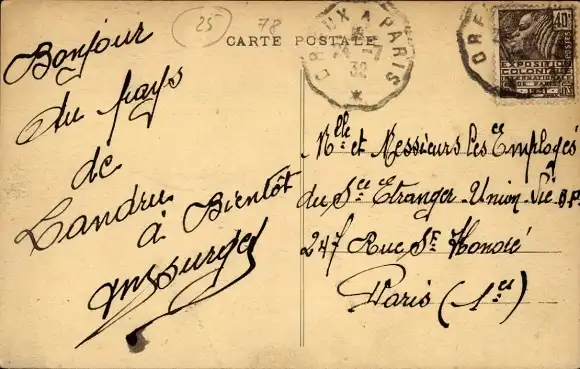 25
78
CARTE POSTALE
DREUX A PARIS
32
DRE
40c
EXPOSITION
COLONIALE
INTERNATIONALE
DE PARIS
1931
Bonjour
du pays
de
Landru
à Bientôt
Mlle et Messieurs les Employés
du Sce Etranger-Union-Pie
247 Rue St Honoré
Paris (1er)